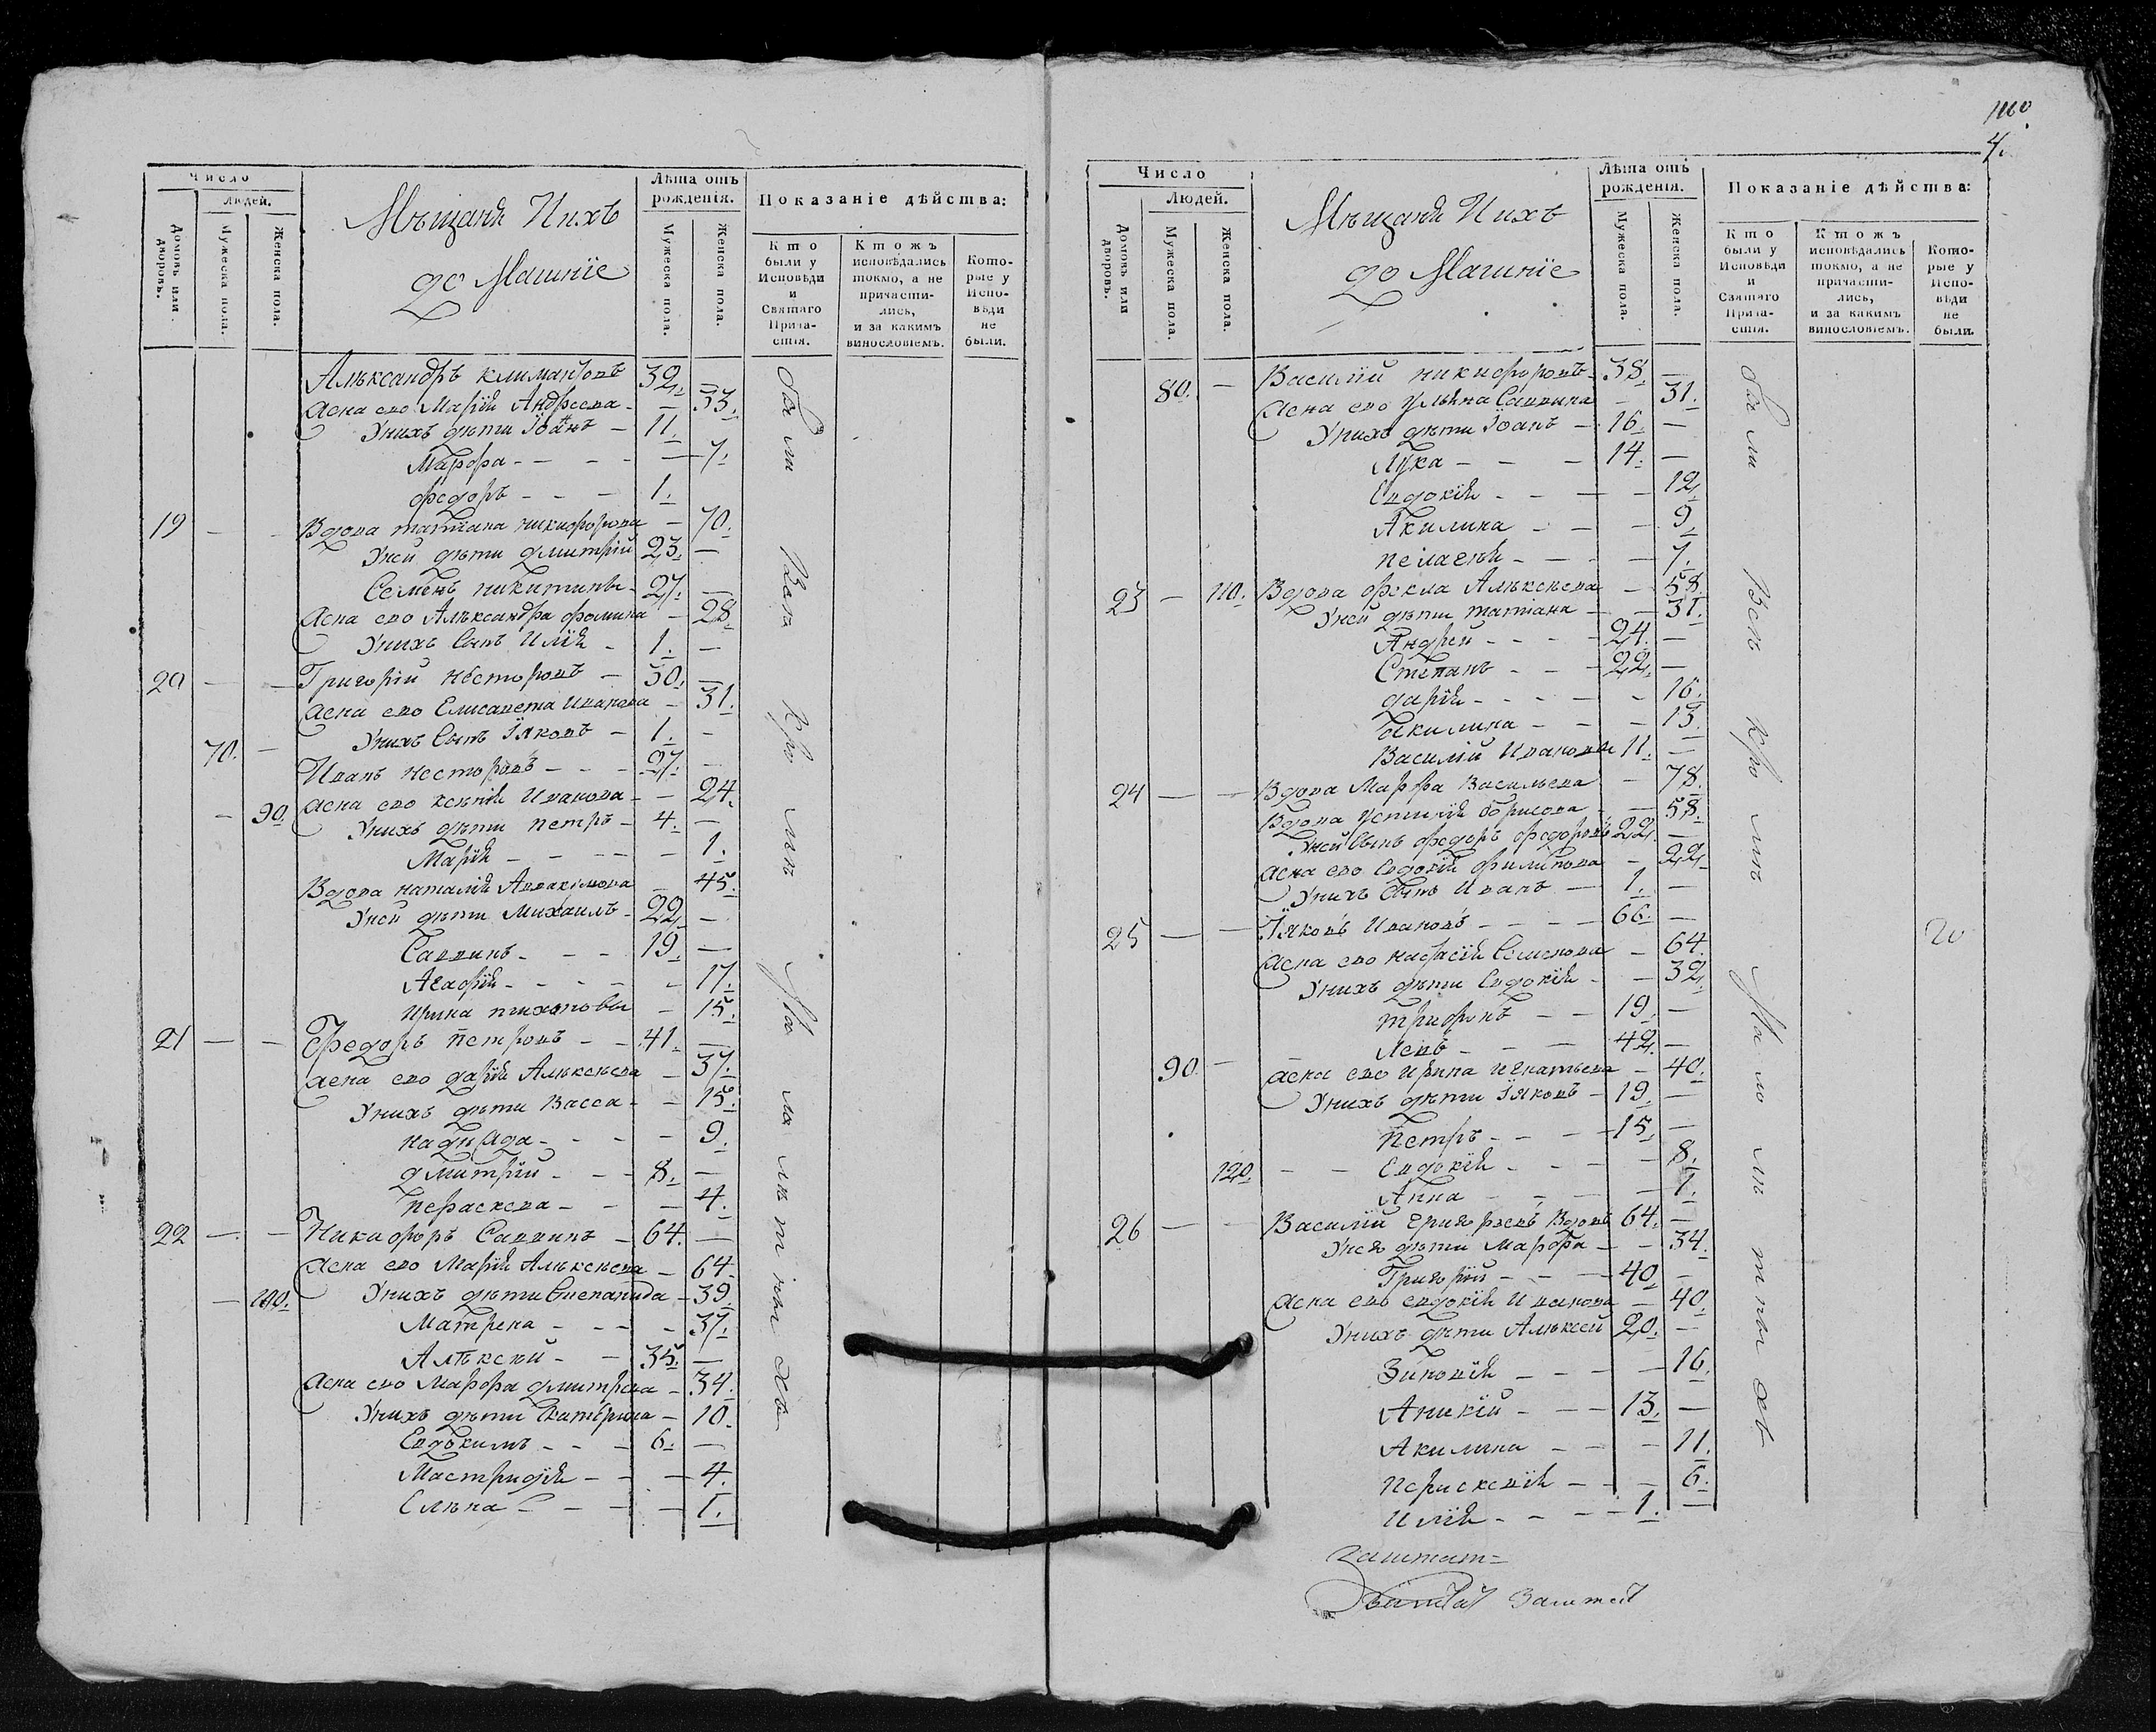 Число
Людей.
Домовъ или дворовъ.
Мужеска пола.
Женска пола.
Мѣщаня Ихъ
домашніе
Лѣта отъ рожденія.
Мужеска пола.
Женска пола.
Показаніе дѣйства:
Кто были у Исповѣди и Святаго Прича- стія.
Ктожъ исповѣдались токмо, а не причасти- лись, и за какимъ винословіемъ.
Кото- рые у Испо- вѣди не были.
Алѣксандръ климантовъ 32.
жена ево Марїя Андреева - - 33.
Унихъ дѣти Їоанъ - 11.
Марфа - - - - 7.
федоръ - - - 1.
19 - - Вдова татїана никифорова - 70.
Уней дѣти дмитрїй 23. -
Семенъ никитины - 27. -
жена ево Алѣксандра фомина - 28.
Унихъ Сынъ Илїя - 1. -
20 - - Григорїй несторовъ - 50. -
жена ево Елисавета Иванова - 31.
Унихъ Сынъ Їяковъ - 1. -
70. - Иванъ несторовъ - - - 27. -
- 90. жена ево ксѣнїя Иванова - - 24.
Унихъ дѣти петръ - 4. -
Марїя - - - - - 1.
Вдова наталїя Аввакумова - 45.
Уней дѣти Михаилъ - 22. -
Саввинъ - - - 19. -
Агафїя - - - - - 17.
Ирина тихоновы - 15.
21 - - Федоръ петровъ - - 41. -
жена ево дарїя Алѣксѣева - 37.
Унихъ дѣти Васса - - 15.
надѣжда - - - - 9.
дмитрїй - - - 8. -
пераскева - - - 4.
22 - - Никифоръ Саввинъ - 64. -
жена ево Марїя Алѣксѣева - 64.
- 100. Унихъ дѣти Степанида - 39.
Матрена - - - - 37.
Алѣксѣй - - 35. -
жена ево Марфа дмитрева - 34.
Унихъ дѣти Екатерина - 10.
Евдокимъ - - - 6. -
Мастридїя - - - 4.
Елѣна - - - - 1.
4.
Число
Людей.
Домовъ или дворовъ.
Мужеска пола.
Женска пола.
Мѣщаня Ихъ
домашніе
Лѣта отъ рожденія.
Мужеска пола.
Женска пола.
Показаніе дѣйства:
Кто были у Исповѣди и Святаго Прича- стія.
Ктожъ исповѣдались токмо, а не причасти- лись, и за какимъ винословіемъ.
Кото- рые у Испо- вѣди не были.
80. - Василїй никифоровъ - 38. -
жена ево улѣяна Саввина - 31.
Унихъ дѣти Їоанъ - 16. -
Лука - - - 14. -
Евдокїя - - - - 12.
Акилина - - - 9.
пелагѣя - - - - 7.
23 - 110. Вдова фекла Алѣксѣева - 58.
Уней дѣти татиана - - 31.
Андрей - - - - 24. -
Степанъ - - - 22. -
дарїя - - - - - 16.
акилина - - - 13.
Василїй Ивановы 11. -
24 - - Вдова Марфа Васильева - 78.
Вдова устинїя борисова - - 58.
Уней Сынъ федоръ федоровъ 22. -
жена ево Евдокїя филипова - 22.
Унихъ Сынъ Иванъ - 1. -
25 - - Їяковъ Ивановъ - - - - 66. -
жена ево настасїя Семенова - 64.
Унихъ дѣти Евдокїя - - 32.
трифонъ - - 19. -
Левъ - - - 42. -
90. - жена ево Ирина игнатьева - 40.
Унихъ дѣти Їяковъ - 19. -
петръ - - - 15. -
120. - - Евдокїя - - - - 8.
Анна - - - - 1.
26 - - Василїй григорьевъ Вдовъ 64. -
Унего дѣти Марфа - - 34.
Григорїй - - - 40. -
жена ево евдокїя Иванова - 40.
Унихъ дѣти Алѣксей 20. -
Зиновїя - - - - 16.
Аникїй - - - 13. -
Акилина - - - 11.
перискевїя - - - 6.
илїя - - - - 1. -
были Вси Кромѣ Малолѣтныхъ
были Всѣ Кромѣ Малолѣтныхъ